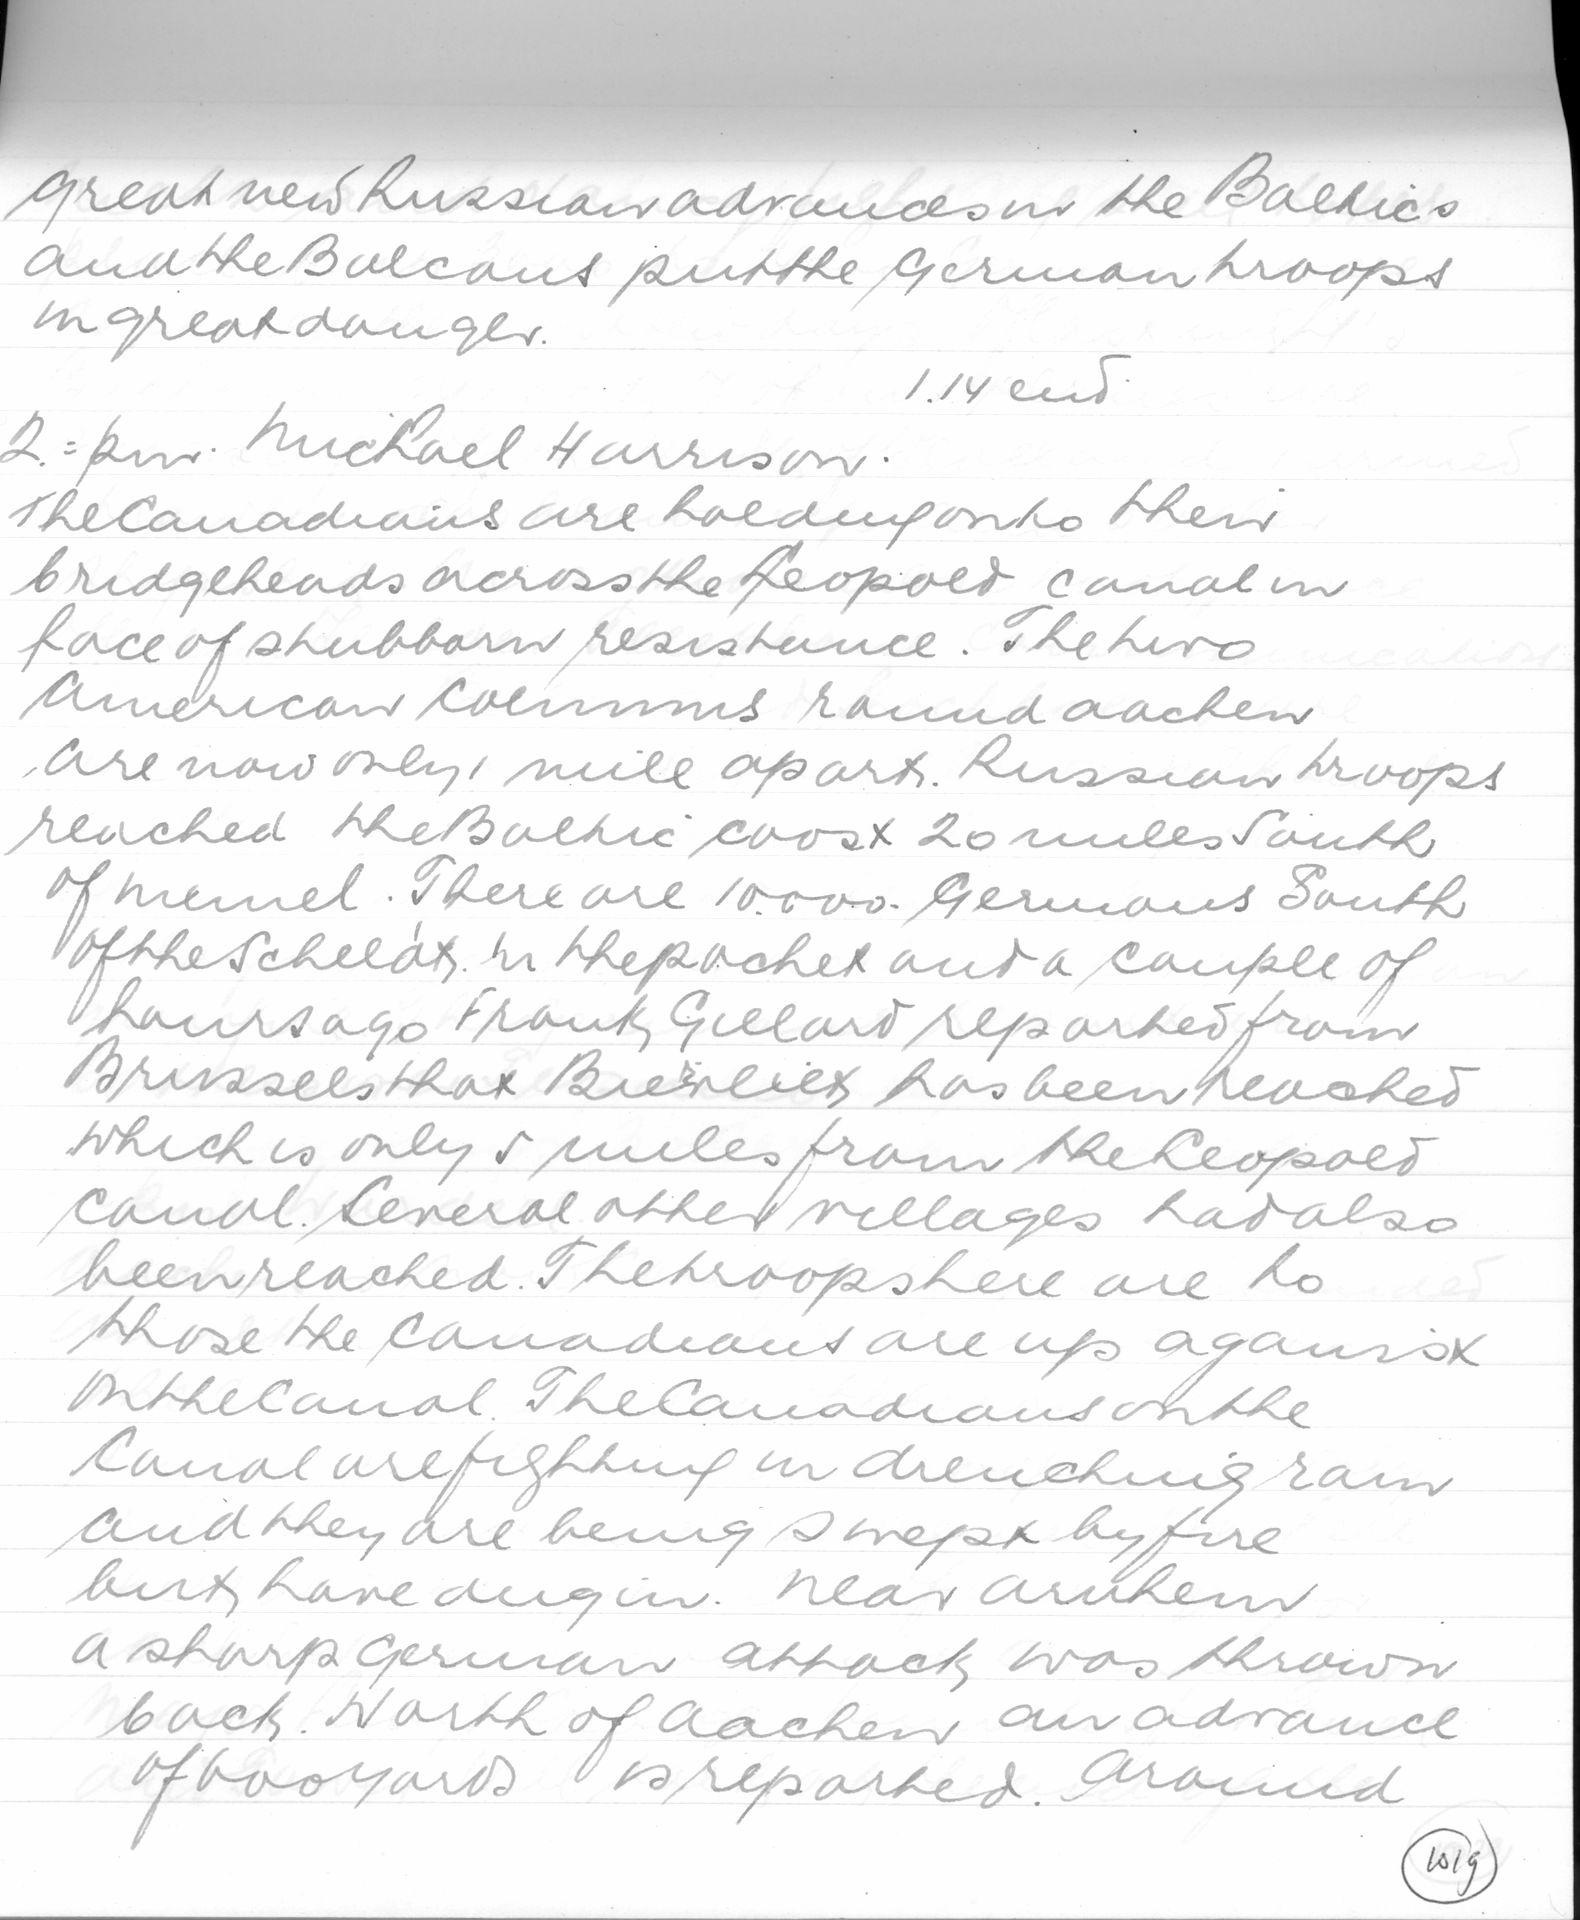 great new Russian advances in the Baltics
and the Balcans put the German troops
in great danger.
1.14 end.
2.= pm. Michael Harrison.
The Canadians are holding onto their
bridgeheads across the Leopold canal in
face of stubborn resistance. The two
American Columns round Aachen
are now only 1 mile apart. Russian troops
reached the Baltic coast 20 miles South
of Memel. There are 10.000. Germans South
of the Scheldt. in the pocket and a couple of
hours ago Frank Gillard reported from
Brussels that Biervliet has been reached
which is only 5 miles from the Leopold
canal. Several other villages had also
been reached. The troops here are to
those the Canadians are up against
on the Canal. The Canadians on the
Canal are fighting in drenching rain
and they are being swept by fire
but have dug in. Near Arnhem
a sharp German attack was thrown
back. North of Aachen an advance
of 600 yards is reported. Around
1019